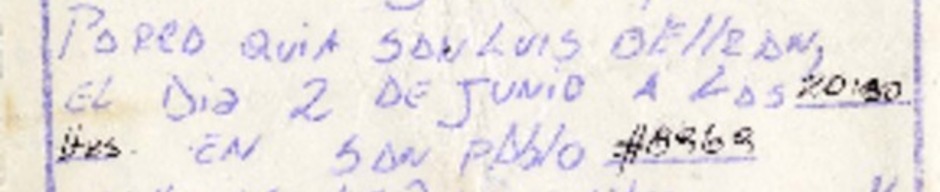 PARROQUIA SAN LUIS BELTRAN,
EL DIA 2 DE JUNIO A LAS 20:30
Hrs. EN SAN PABLO #8969